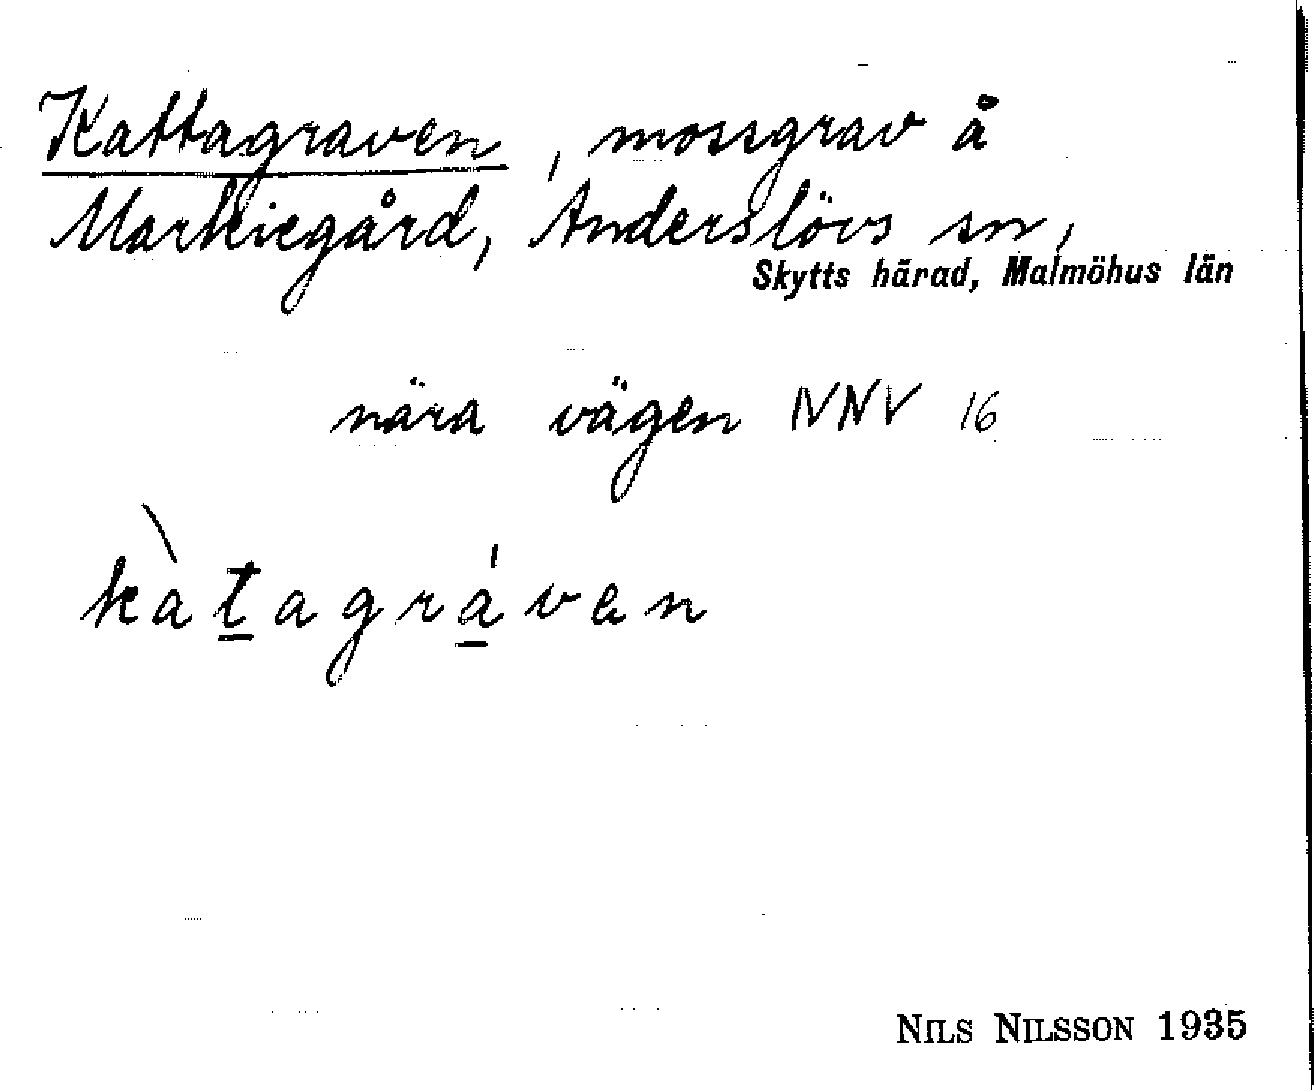 Kattagraven, mossgrav å
Markiegård, Anderslövs sn,
Skytts härad, Malmöhus län
nära vägen NNV 16
kàtagráven
NILS NILSSON 1935